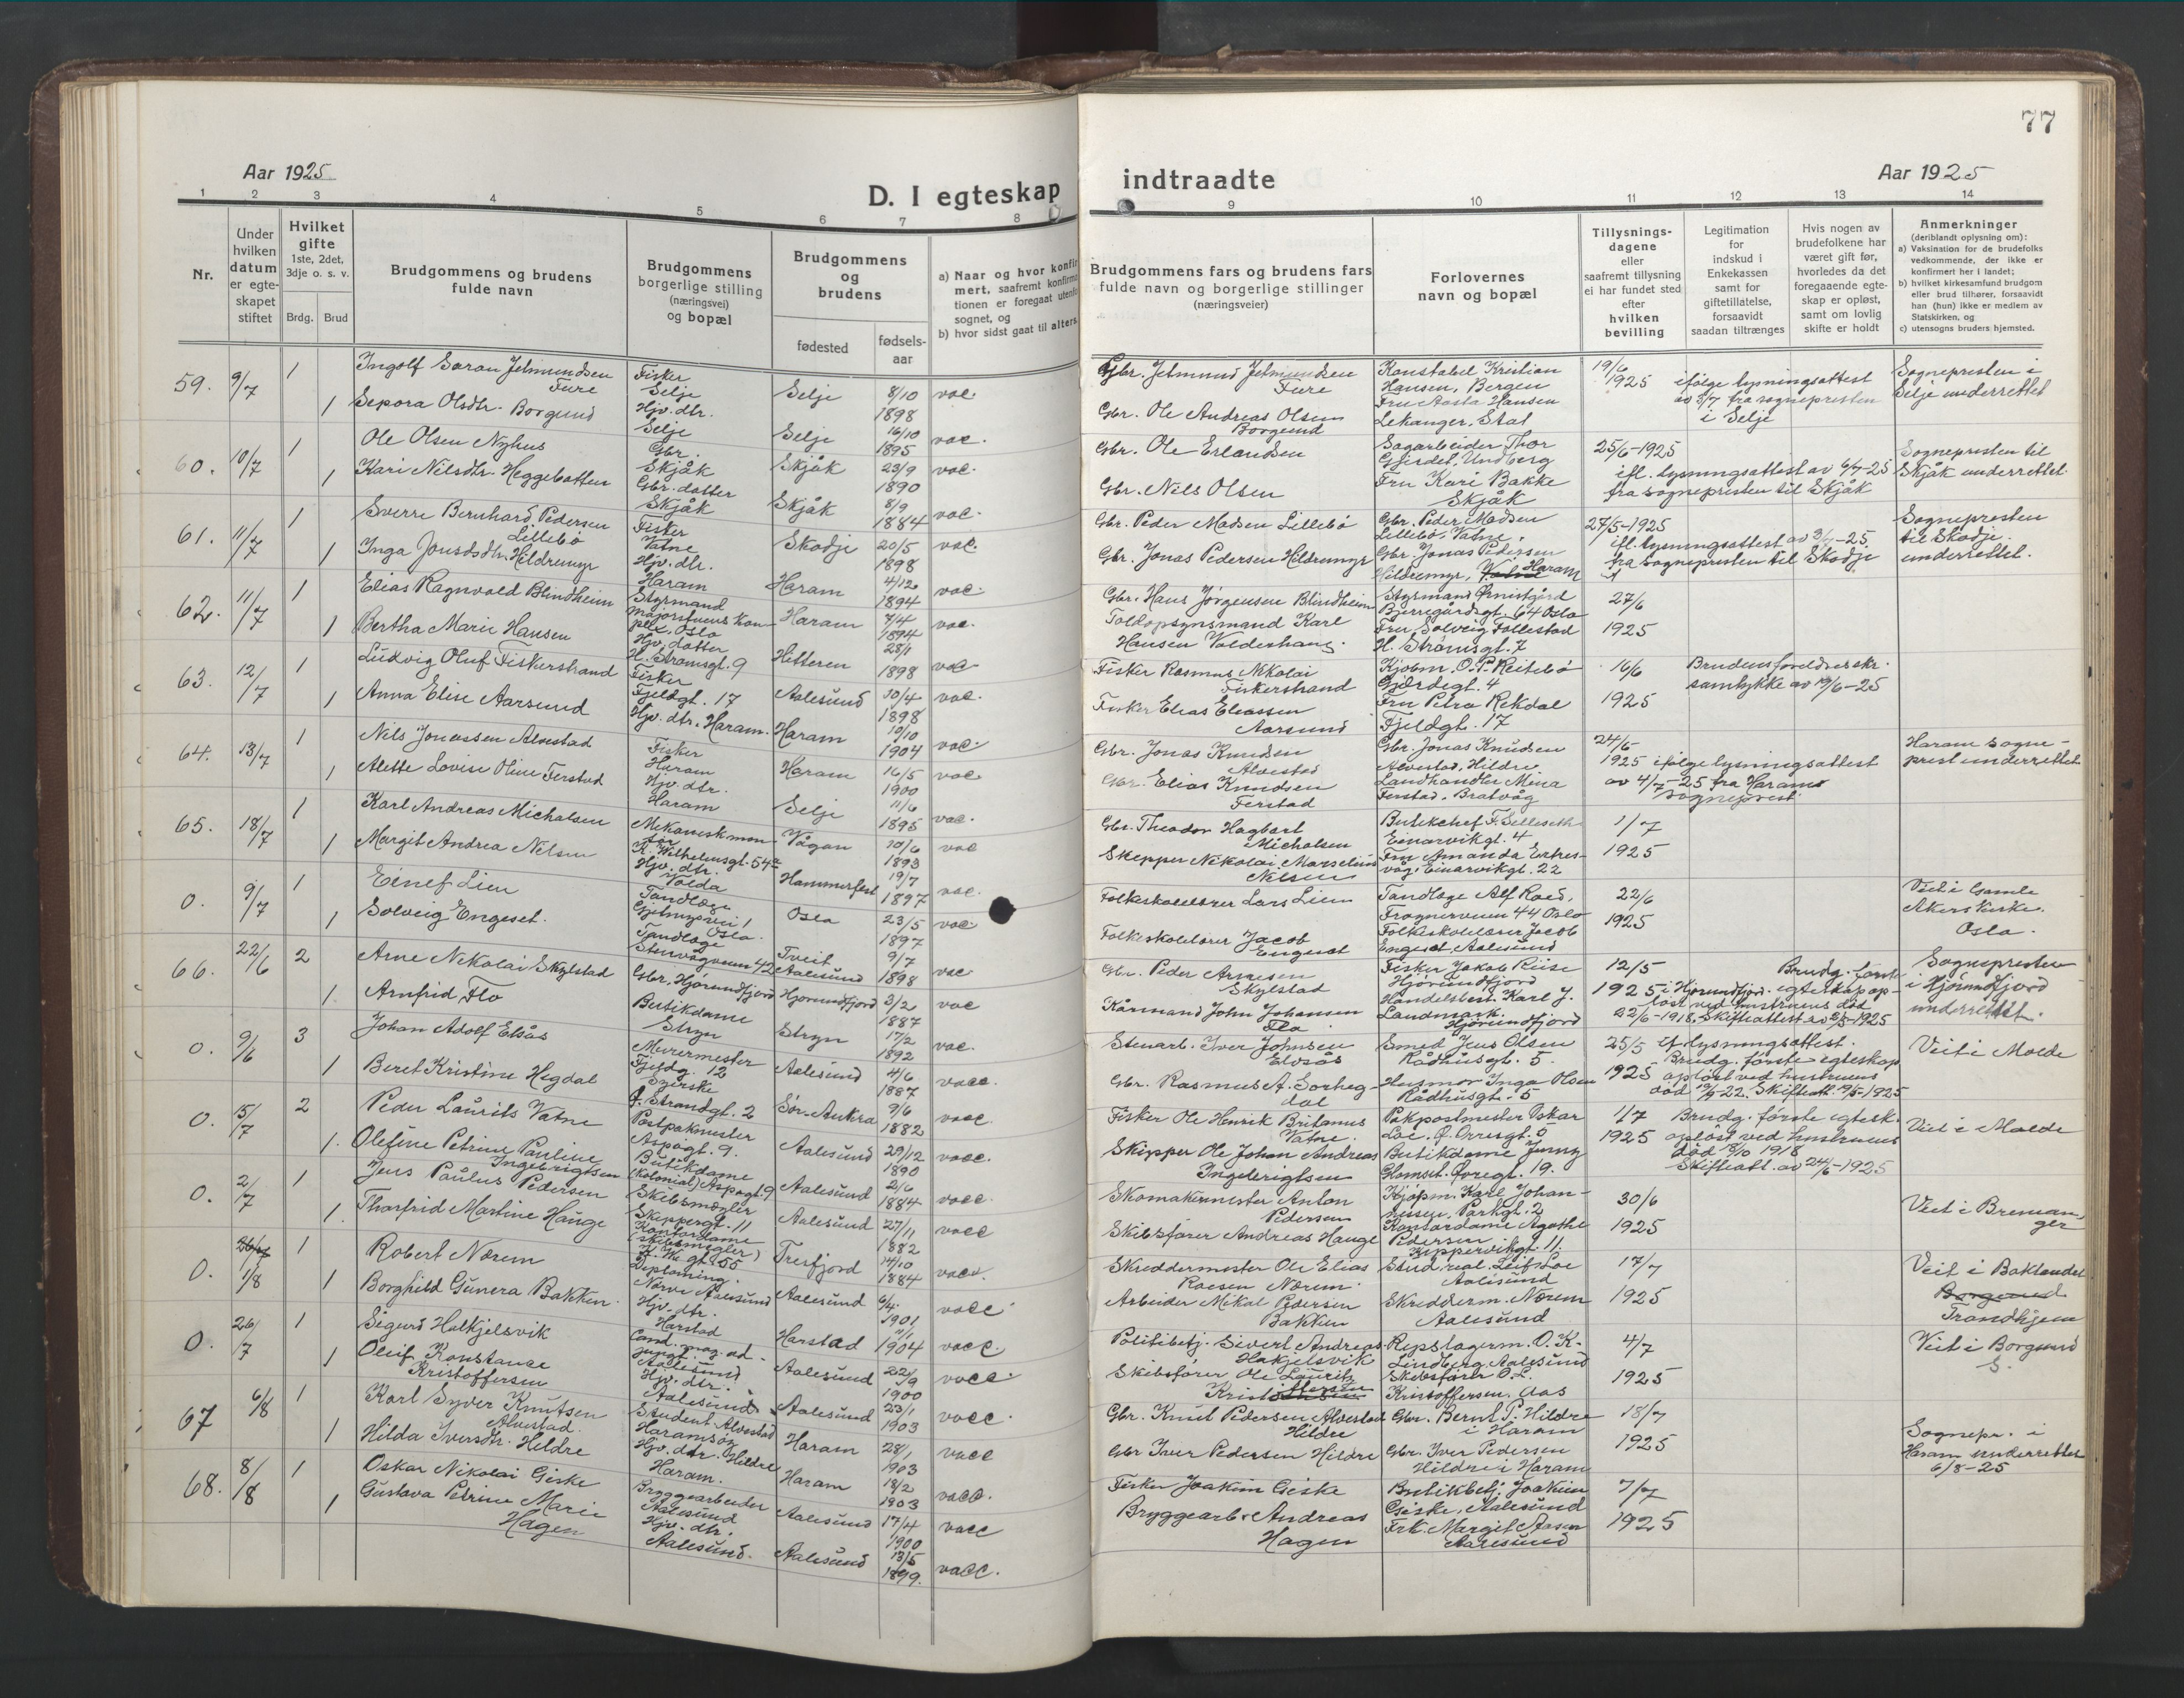 77
Aar 1925
D. I egteskap
indtraadte
Aar 1925
1 2 3 4 5 6 7 8 9 10 11 12 13 14
Nr.
Under hvilken datum er egte-skapet stiftet
Hvilket gifte 1ste, 2det, 3dje o. s. v.
Brdg. Brud
Brudgommens og brudens fulde navn
Brudgommens borgerlige stilling (næringsvei) og bopæl
Brudgommens og brudens
fødested
fødsels-aar
a) Naar og hvor konfir
mert, saafremt konfirma
tionen er foregaat utenfo
sognet, og
b) hvor sidst gaat til alters.
Brudgommens fars og brudens fars
fulde navn og borgerlige stillinger
(næringsveier)
Forlovernes
navn og bopæl
Tillysnings-dagene eller saafremt tillysning ei har fundet sted efter hvilken bevilling
Legitimation for indskud i Enkekassen samt for giftetillatelse, forsaavidt saadan tiltrænges
Hvis nogen av brudefolkene har været gift før, hvorledes da det foregaaende egte-skap er opløst, samt om lovlig skifte er holdt
Anmerkninger
(deriblandt oplysning om):
a) Vaksination for de brudefolks vedkommende, der ikke er konfirmert her i landet;
b) hvilket kirkesamfund brudgom eller brud tilhører, forsaavidt han (hun) ikke er medlem av Statskirken, og
c) utensogns bruders hjemsted.
59. 9/7 1 Ingolf Søran Jetmundsen Fure Fisker Selje Selje 8/10 1898 vac. Gbr. Jetmund Jetmundsen Fure Konstabel Kristian Hansen, Bergen 19/6 1925 ifølge lysningsattest av 3/7 fra sognepresten i Selje Sognepresten i Selje underrettet
1 Sepora Olsdtr. Borgund Hjv. dtr. Selje Selje 16/10 1895 vac. Gbr. Ole Andreas Olsen Borgund Fru Aasta Hansen Lekanger, Stat
60. 10/7 1 Ole Olsen Nyhus Gbr. Skjåk Skjåk 23/9 1890 vac. Gbr. Ole Erlandsen Sagarbeider Thor Gjerdet, Undberg 25/6-1925 ifl. lysningsattest av 6/7-25 fra sognepresten til Skjåk Sognepresten til Skjåk underrettet
1 Kari Nilsdtr. Heggebotten Gbr. datter Skjåk Skjåk 8/9 1884 vac. Gbr. Nils Olsen Fru Kari Bakke Skjåk
61. 11/7 1 Sverre Bernhard Pedersen Lillebø Fisker Vatne Skodje 20/5 1898 vac. Gbr. Peder Madsen Lillebø Gbr. Peder Madsen Lillebø, Vatne. 27/5-1925 ifl. lysningsattest av 3/7-25 fra sognepresten til Skodje Sognepresten til Skodje underrettet.
1 Inga Jonsdtr. Hildremyr Hjv. dtr. Haram Haram 4/12 1894 vac. Gbr. Jonas Pedersen Hildremyr Gbr. Jonas Pedersen Hildremyr, Haram
62. 11/7 1 Elias Ragnvald Blindheim Styrmand Oslo Haram 7/4 1894 vac. Gbr. Hans Jørgensen Blindheim Styrmand Bjerregårdsgt. 64 Oslo 27/6 1925
1 Bertha Marie Hansen Hjv. datter H. Strømsgt. 9 Hitteren 28/1 1898 vac Toldopsynsmand Karl Hansen Valderhaug. Fru Solveig Follestad H. Strømsgt. 7
63. 12/7 1 Ludvig Oluf Fiskerstrand Fisker Fjeldgt. 17 Aalesund 30/4 1898 vac. Fisker Rasmus Nikolai Fiskerstrand Kjøbm. O. P. Reitebø Gjærdegt. 4 16/6 1925 Brudens foreldres skr. samtykke av 19/6-25
1 Anna Elise Aarsund Hjv. dtr. Haram. Haram 10/10 1904 vac. Fisker Elias Eliassen Aarsund Fru Petra Rekdal Fjeldgt. 17
64. 13/7 1 Nils Jonassen Alvestad Fisker Haram Haram 16/5 1900 vac. Gbr. Jonas Knudsen Alvestad Gbr. Jonas Knudsen Alvestad, Hildre 24/6 1925 ifølge lysningsattest av 4/7-25 fra Harams sogneprest. Haram sogneprest underrettet
1 Alette Lovise Oline Ferstad Hjv. dtr. Haram Selje 11/6 1895 vac. Gbr. Elias Knudsen Ferstad Landhandler Mina Ferstad, Brattvåg
65. 18/7 1 Karl Andreas Micholsen Mekanisk montør K. Wilhelmsgt. 54 Vågan 10/6 1893 vac Gbr. Theodor Hagbart Micholsen Butikchef F. Selleseth Einarvikgt. 4 1/7 1925
1 Margit Andrea Nelsen Hjv. dtr. Volda Hammerfest 19/7 1897 vac. Skipper Nikolai Marselius Nelsen Fru Amanda Extresvåg, Einarvikgt. 22
0. 9/7 1 Einef Lien Tandlæge Oslo. Oslo 23/5 1897 vac Folkeskolelærer Lars Lien Tandlæge Alf Roed, Frognerveien 44 Oslo 22/6 1925 Viet i Gamle Akers Kirke. Oslo.
1 Solveig Engeset. Tandlæge Stenvågveien 42 Tveit Aalesund 9/7 1898 vac Folkeskolelærer Jacob Engeset Folkeskolelærer Jacob Engeset, Aalesund
66. 22/6 2 Arne Nikolai Skylstad Gbr. Hjørundfjord Hjørundfjord 3/2 1887 vac Gbr. Peder Arnesen Skylstad Fisker Jakob Riise Hjørundfjord 12/5 1925 i Hjørundfjord. Brudg. første egteskap opløst ved hustruens død 22/6-1918. Skifteattest av 2/5-1925 Sognepresten i Hjørundfjord underrettet.
1. Arnfrid Flo Butikdame Stryn Stryn 17/2 1892 vac. Kårmand John Johansen Flo Handelsbest. Karl J. Landmark. Hjørundfjord
0. 9/6 3 Johan Adolf Elsås Murermester Fjeldg. 12 Aalesund 4/6 1887 vacc. Stenarb. Iver Johnsen Elvsås Smed Jens Olsen Rådhusgt. 5. 25/5 1925 ifl. lysningsattest. Brudg. første egteskap opløst ved hustruens død 12/9-22. Skifteatt. 19/5-1925 Viet i Molde
1 Beret Kristine Hegdal Syerske Strandgt. 2 Sør-Aukra 9/6 1882 vacc. Gbr. Rasmus A. Sorhegdal Husmor Inga Olsen Rådhusgt. 5
0. 15/7 2 Peder Laurits Vatne Postpakmester Aspøgt. 9. Aalesund 29/12 1890 vacc. Fisker Ole Henrik Britanus Vatne. Pakpostmester Oskar Loe, Ø. Orrisgt. 5 1/7 1925 Brudg. første egtesk. opløst ved hustruens død 18/10 1918 Skifteatt. av 24/6-1925 Viet i Molde
1. Olefine Petrine Pauline Ingebrigtsen Butikdame (Kolonial) Aspøgt. 9 Aalesund 2/6 1884 vacc. Skipper Ole Johan Andreas Ingebrigtsen Butikdame Jenny Glomset. Øvregt. 19.
0. 2/7 1 Jens Paulus Pedersen Skibsmægler Skippergt. 11 Aalesund 27/11 1882 vacc Skomakermester Anton Pedersen Kjøpm. Karl Johannessen, Parkgt. 2 30/6 1925 Viet i Bremanger
1. Thorfrid Martine Hauge Kontordame (skibsmegler) K. Wi. gt. 55 Tresfjord 14/10 1884 vacc. Skibsfører Andreas Hauge Kontordame Agathe Pedersen Kippervikgt. 11.
0. 1/8 1 Robert Nørem Diploming. Nørve Aalesund Aalesund 6/4 1901 vacc. Skreddermester Ole Elias Roesen Nørem. Stud. real. Leif Loe Aalesund 17/7 1925 Viet i Baklandet Trondhjem
1 Borghild Gunera Bakken. Hjv. dtr. Harstad Harstad 1904 vacc. Arbeider Mikal Pedersen Bakken Skredderm. Nørem Aalesund
0. 26/7 1 Sigurd Halkjelsvik Cand. mag. adjunkt. Aalesund Aalesund 22/9 1900 vacc. Politibetj. Sivert Andreas Hakjelsvik Repslagerm. O. K. Lindberg, Aalesund 4/7 1925 Viet i Borgund S.
1 Oleif Konstanse Kristoffersen Hjv. dtr. Aalesund Aalesund 23/1 1903 vacc. Skibsfører Ole Lauritz Skibsfører O. L. Kristoffersen, Aas
67 6/8 1 Karl Syver Knutsen Alvestad. Student Alvestad Haramsøy Haram 28/1 1903 vacc Gbr. Knut Pedersen Alvestad Hildre Gbr. Bernt P. Hildre i Haram 18/7 1925 Sognepr. i Haram underrettet 6/8-25
1 Hilda Iversdtr. Hildre Hjv. dtr. Hildre Haram. Haram 18/2 1903 vacc. Gbr Iver Pedersen Hildre Gbr. Iver Pedersen Hildre i Haram
68. 8/8 1 Oskar Nikolai Giske Bryggearbeider Aalesund Aalesund 17/4 1900 vacc Fisker Joakim Giske Butikbetj. Joakim Giske, Aalesund 7/7 1925
1 Gustava Petrine Marie Hagen Hjv. dtr. Aalesund. Aalesund 13/5 1899. vacc. Bryggearb. Andreas Hagen Frk. Margit Aasen Aalesund